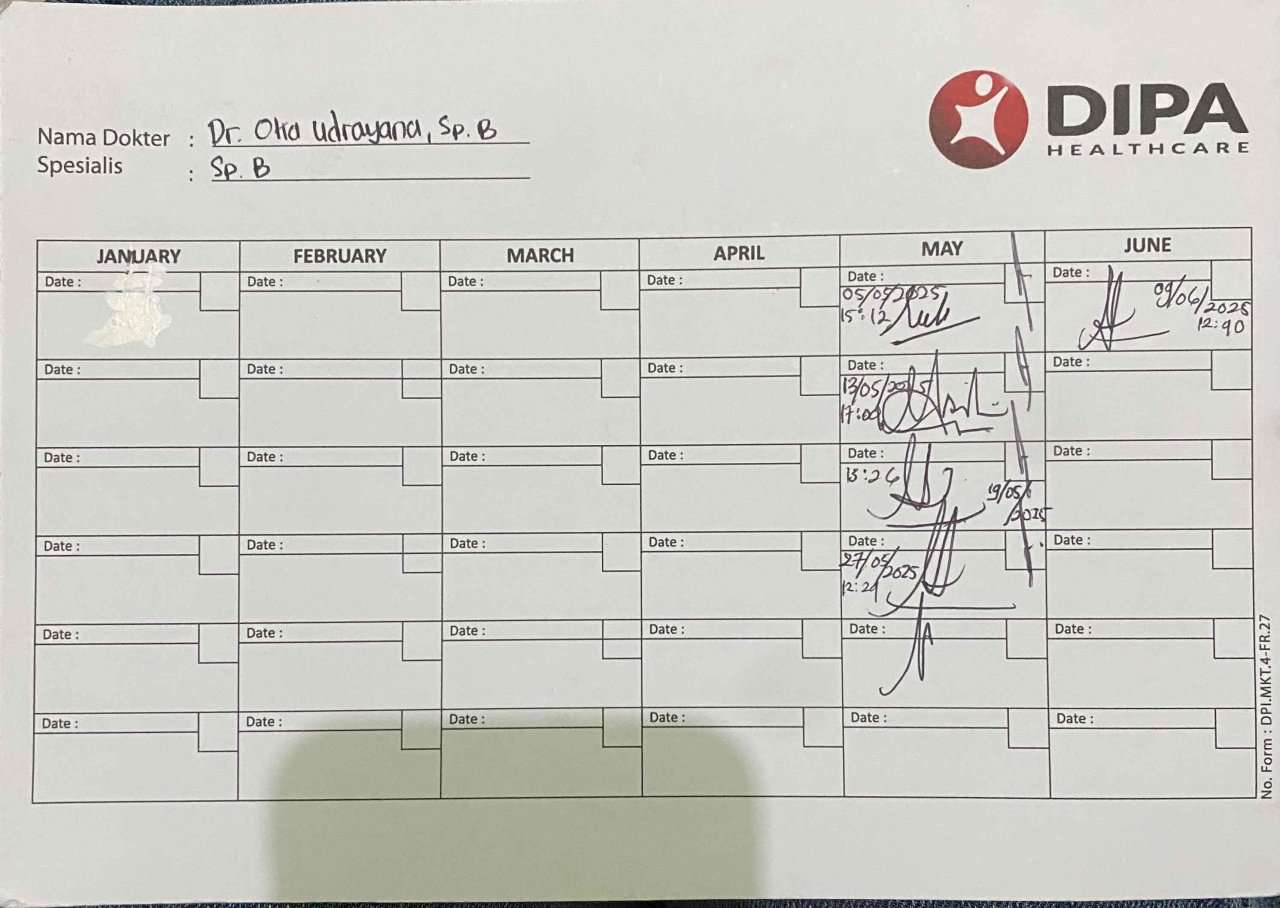 DIPA
HEALTHCARE
Nama Dokter : Dr. Oka Udrayana, Sp. B
Spesialis : Sp. B
JANUARY FEBRUARY MARCH APRIL MAY JUNE
Date : Date : Date : Date : Date : Date :
05/05/2025 09/06/2025
15:12 12:40
Date : Date : Date : Date : Date : Date :
13/05/2025
17:00
Date : Date : Date : Date : Date : Date :
13:26 19/05/2025
Date : Date : Date : Date : Date : Date :
27/05/2025
12:21
Date : Date : Date : Date : Date : Date :
Date : Date : Date : Date : Date : Date :
No. Form : DPI.MKT.4-FR.27